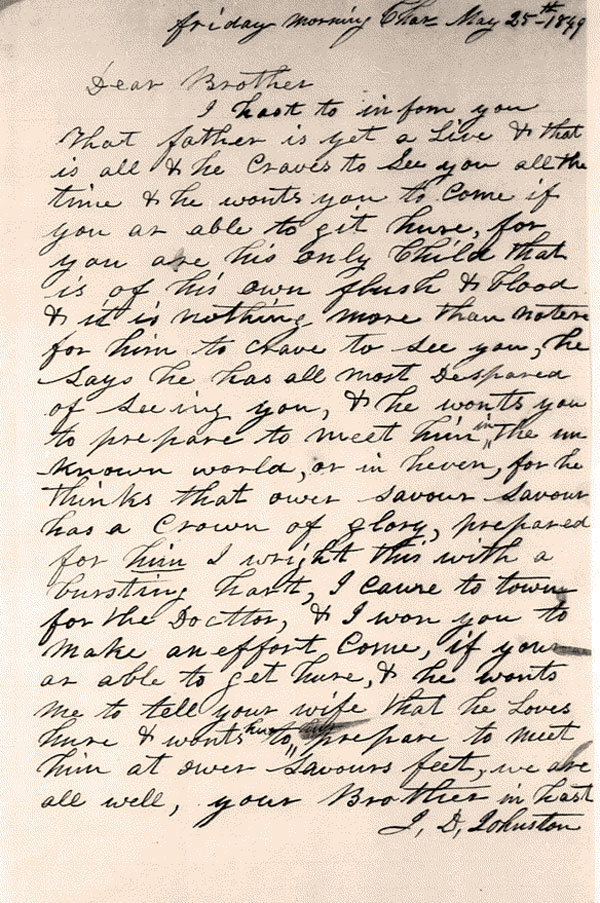 friday morning Char May 25th 1849
Dear Brother
I hast to inform you
That father is yet a Live & that
is all & he Craves to See you all the
time & he wonts you to Come if
you ar able to git hure, for
you are his only Child that
is of his own flush & blood
& it is nothing more than notere
for him to Crave to see you, he
says he has all most Despared
of seeing you, & he wonts you
to prepare to meet him in the un
known world, or in heven, for he
thinks that ower savour Savour
has a Crown of glory, prepared
for him I wright this with a
bursting hart, I came to town
for the Docttor, & I won you to
make an effort Come, if you
ar able to get hure, & he wonts
me to tell your wife that he Loves
hure & wonts hur to prepare to meet
him at ower Savours feet, we are
all well, your Brother in hast
J, D, Johnston